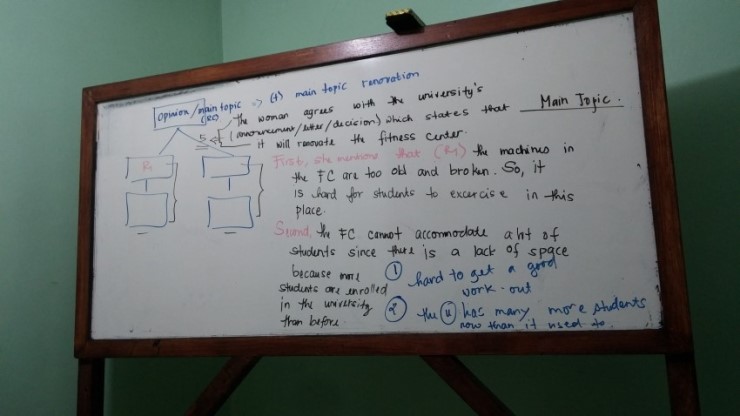 Opinion/main topic => (+) main topic renovation
(RC) The woman agrees with the university's
5 (announcement/letter/decision) which states that Main Topic.
it will renovate the fitness center.
R1 First, she mentions that (R1) the machines in
the FC are too old and broken. So, it
is hard for students to excercise in this
place.
Second, the FC cannot accommodate a lot of
students since there is a lack of space
because more
students are enrolled
in the university
than before.
① hard to get a good
work-out
② the (u) has many more students
now than it used to.